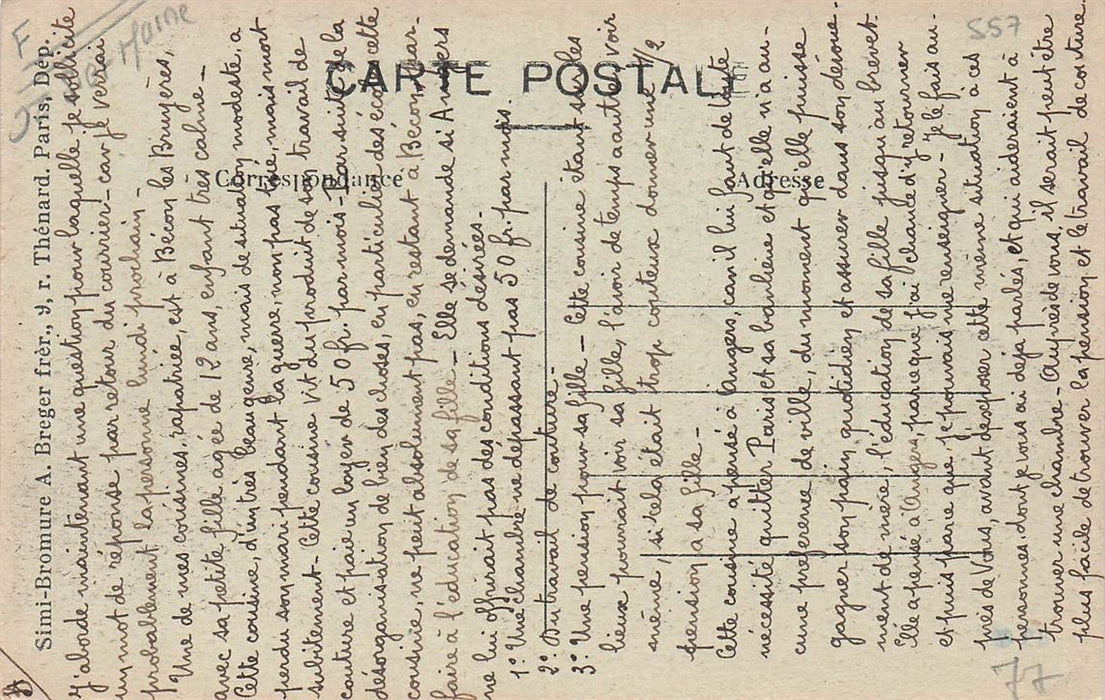 CARTE POSTALE
Correspondance
Adresse
Simi-Bromure A. Breger frèr., 9, r. Thénard. Paris, Dép.
557
77
J'aborde maintenant une question pour laquelle je sollicite
un mot de réponse par retour du courrier – car je verrai
probablement la personne lundi prochain –
Une de mes cousines, rapatriée, est à Bécon les Bruyères,
avec sa petite fille agée de 12 ans, enfant très calme –
Cette cousine, d'un très beau genre, mais de situation modeste, a
perdu son mari pendant la guerre, non pas tué, mais mort
subitement – Cette cousine vit du produit de son travail de
couture et paie un loyer de 50 fr. par mois – Par suite de la
désorganisation de bien des choses, en particulier des écoles cette
cousine, ne peut absolument pas, en restant à Bécon, par-
faire à l'éducation de sa fille – Elle se demande si Angers
ne lui offrirait pas des conditions désirées –
1º: Une chambre ne dépassant pas 50 fr. par mois.
2º: Du travail de couture –
3º: Une pension pour sa fille – Cette cousine étant sur les
lieux pourrait voir sa fille, l'avoir de temps autre voir
même, si cela était trop couteux donner une 1/2
pension à sa fille –
Cette cousine a pensé à Angers, car il lui faut de toute
nécessité quitter Paris et sa banlieue et qu'elle n'a au-
cune préférence de ville, du moment qu'elle puisse
gagner son pain quotidien et assurer dans son dévoue-
ment de mère, l'éducation de sa fille jusqu'au brevet.
Elle a pensé à Angers, parce que j'ai chance d'y retourner
et puis parce que, je pouvais me renseigner – Je le fais au-
près de Vous, avant d'exposer cette même situation à ces
personnes dont je vous ai déjà parlés, et qui aideraient à
trouver une chambre – Auprès de vous, il serait peut être
plus facile de trouver la pension et le travail de couture.